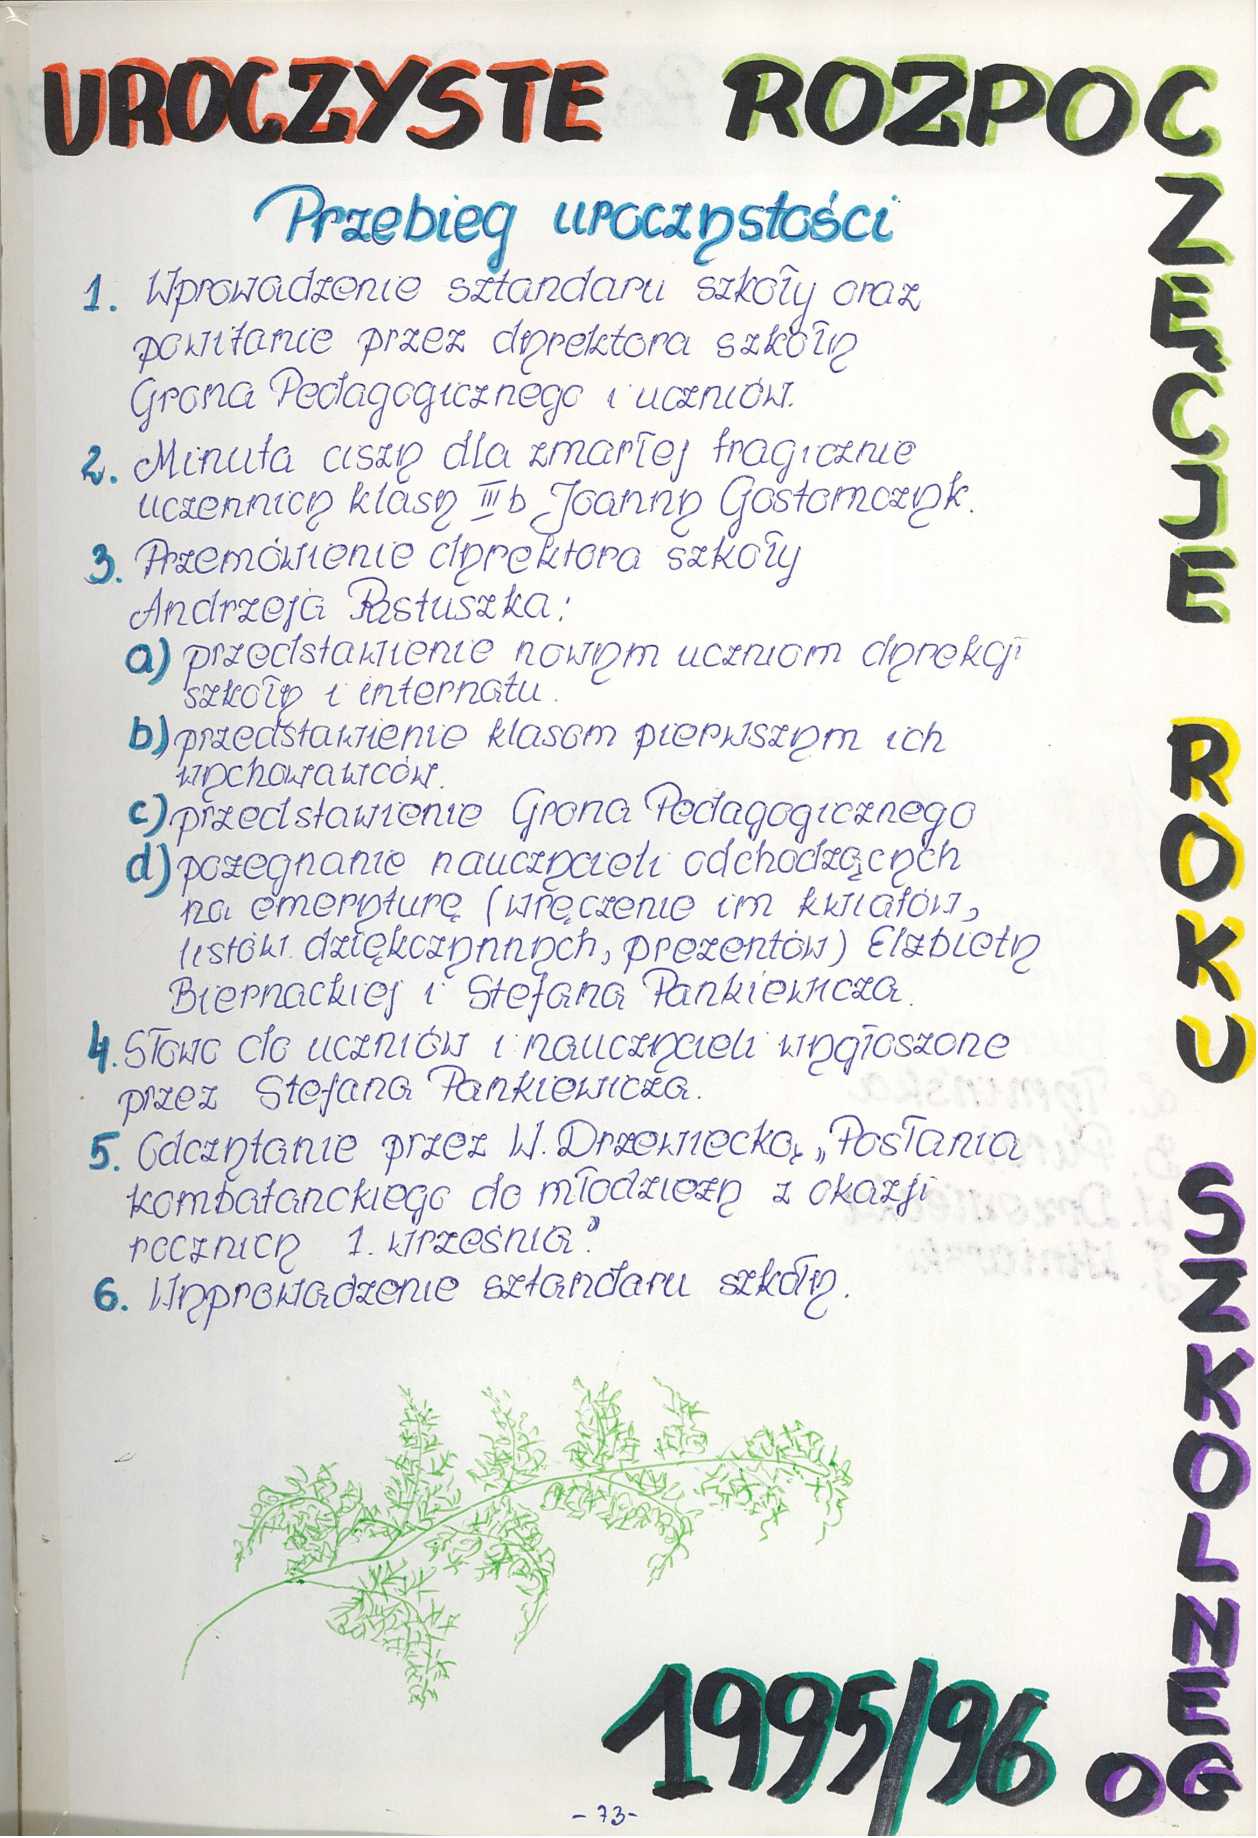 UROCZYSTE ROZPOCZĘCJE ROKU SZKOLNEGO 1995/96
Przebieg uroczystości
1. Wprowadzenie sztandaru szkoły oraz
powitanie przez dyrektora szkoły
Grona Pedagogicznego i uczniów.
2. Minuta ciszy dla zmarłej tragicznie
uczennicy klasy III b Joanny Gostomczyk.
3. Przemówienie dyrektora szkoły
Andrzeja Pastuszka:
a) przedstawienie nowym uczniom dyrekcji
szkoły i internatu.
b) przedstawienie klasom pierwszym ich
wychowawców.
c) przedstawienie Grona Pedagogicznego
d) pożegnanie nauczycieli odchodzących
na emeryturę (wręczenie im kwiatów,
listów dziękczynnych, prezentów) Elżbiety
Biernackiej i Stefana Pankiewicza.
4. Słowo do uczniów i nauczycieli wygłoszone
przez Stefana Pankiewicza.
5. Odczytanie przez W. Drzewiecką „Posłania
kombatanckiego do młodzieży z okazji
rocznicy 1. września”.
6. Wyprowadzenie sztandaru szkoły.
- 73 -